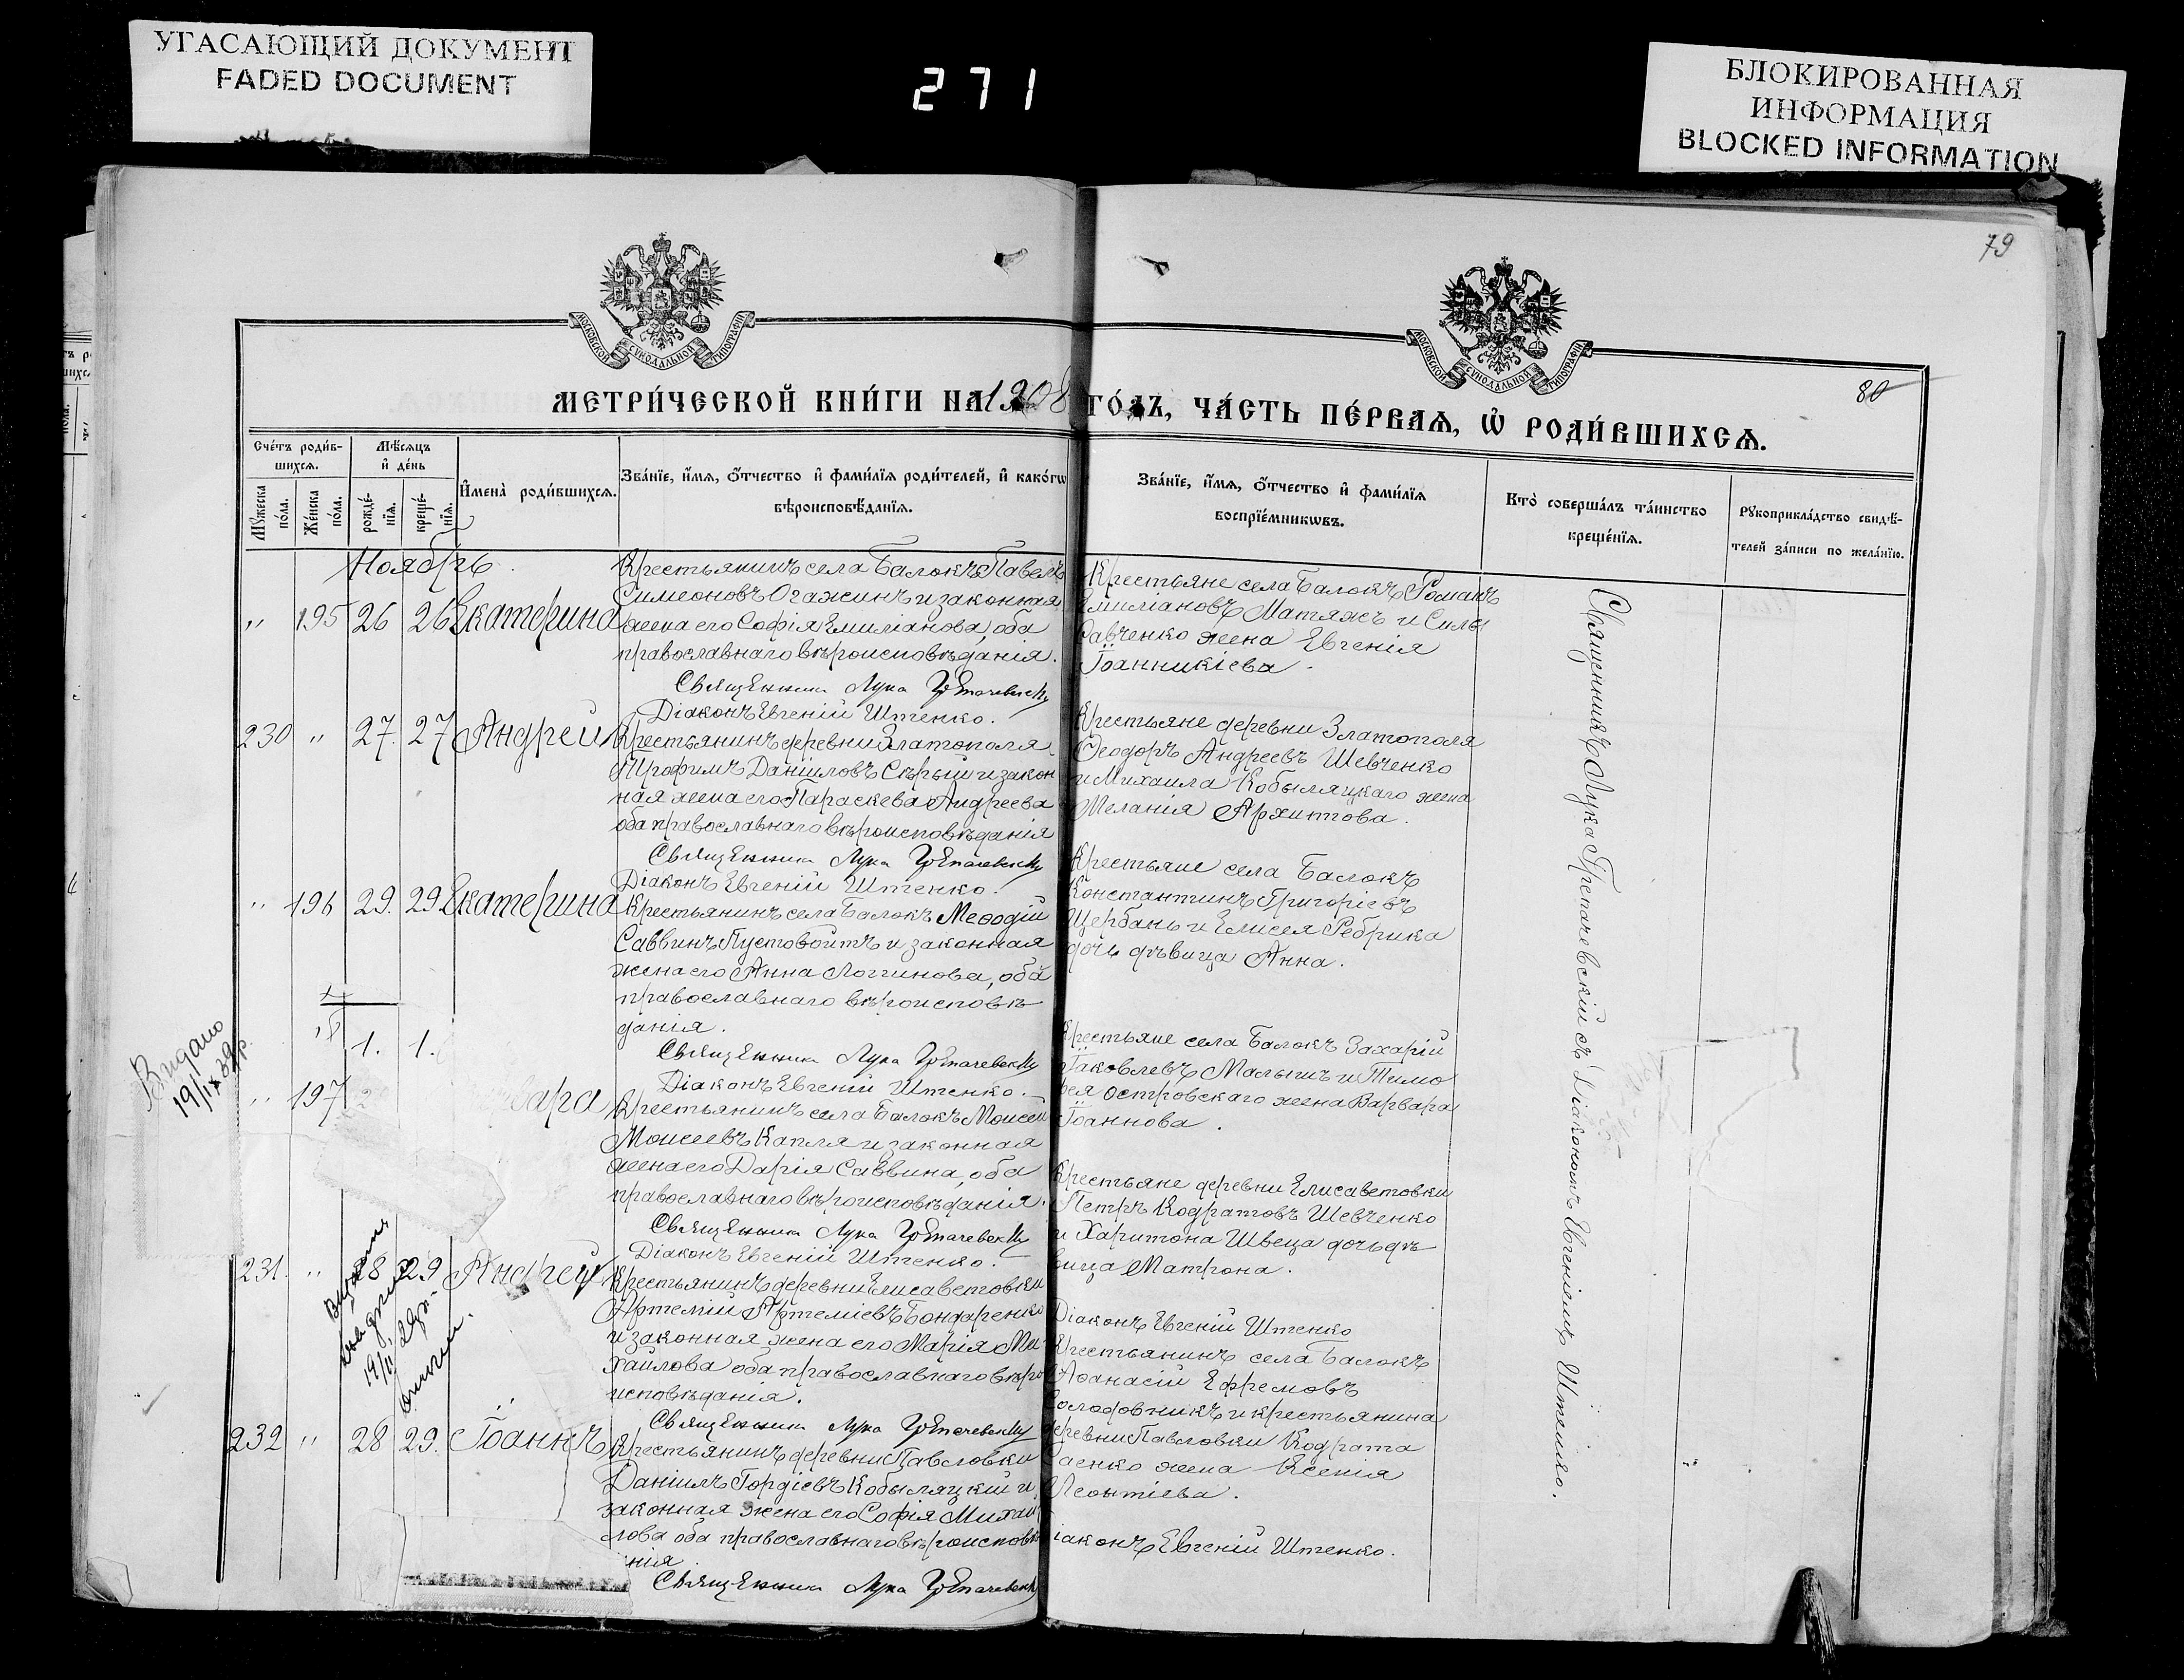 УГАСАЮЩИЙ ДОКУМЕНТ
FADED DOCUMENT
271
БЛОКИРОВАННАЯ
ИНФОРМАЦИЯ
BLOCKED INFORMATION
79
МОСКОВСКОЙ СѴНОДАЛЬНОЙ ТИПОГРАФІИ
МОСКОВСКОЙ СѴНОДАЛЬНОЙ ТИПОГРАФІИ
80
МЕТРИ́ЧЕСКОЙ КНИ́ГИ НА 1908 ГО́ДЪ, ЧА́СТЬ ПЕ́РВАѦ, Ѡ҆ РОДИ́ВШИХСѦ.
Сче́тъ роди́в-
шихсѧ.
Мѣ́сѧцъ
и҆ де́нь
Мꙋ́жеска
по́ла.
Же́нска
по́ла.
рожде́-
нїѧ.
креще́-
нїѧ.
И҆мена̀ роди́вшихсѧ.
Зва́нїе, и҆́мѧ, ѻ҆́тчество и҆ фами́лїѧ роди́телей, и҆ како́гѡ
вѣроисповѣ́данїѧ.
Зва́нїе, и҆́мѧ, ѻ҆́тчество и҆ фами́лїѧ
воспрїе́мникѡвъ.
Кто̀ соверша́лъ та́инство
креще́нїѧ.
Рꙋкоприкла́дство свидѣ́-
телей за́писи по жела́нїю.
Ноябрь
" 195 26 26 Екатерина
Крестьянинъ села Балокъ Павелъ
Симеоновъ Огажинъ и законная
жена его Софія Емиліанова, оба
православнаго вѣроисповѣданія.
Священникъ Лука Грепачевскій
Діаконъ Евгеній Штенко.
Крестьяне села Балокъ Романъ
Емиліановъ Матяжъ и Силы
Савченко жена Евгенія
Іоанникіева.
230 " 27. 27 Андрей
Крестьянинъ деревни Златополя
Трофимъ Даніиловъ Сѣрый и закон
ная жена его Параскева Андреева
оба православнаго вѣроисповѣданія
Священникъ Лука Грепачевскій
Діаконъ Евгеній Штенко.
Крестьяне деревни Златополя
Ѳеодоръ Андреевъ Шевченко
и Михаила Кобыляцкаго жена
Меланія Архиптова.
" 196 29. 29 Екатерина
Крестьянинъ села Балокъ Меѳодій
Саввинъ Пустовойтъ и законная
жена его Анна Логгинова, оба
православнаго вѣроисповѣ
данія.
Священникъ Лука Грепачевскій
Діаконъ Евгеній Штенко.
Крестьяне села Балокъ
Константинъ Григоріевъ
Щербань и Елисея Ребрика
дочь дѣвица Анна.
1. 1.
Выдано
19/IX 39 р.
" 197 вара
Крестьянинъ села Балокъ Моисей
Моисеевъ Капля и законная
жена его Дарія Саввина, оба
православнаго вѣроисповѣданія.
Священникъ Лука Грепачевскій
Діаконъ Евгеній Штенко.
Крестьяне села Балокъ Захарій
Іаковлевъ Малышъ и Тимо
ѳея Островскаго жена Варвара
Іоаннова.
231. " 28 29 Андрей
Крестьянинъ деревни Елисаветовки
Артемій Артеміевъ Бондаренко
и законная жена его Марія Ми
хайлова оба православнаго вѣро
исповѣданія.
Священникъ Лука Грепачевскій
Крестьяне деревни Елисаветовки
Петръ Кодратовъ Шевченко
и Харитона Швеца дочь дѣ
вица Матрона.
Діаконъ Евгеній Штенко
232 " 28 29. Іоаннъ
Крестьянинъ деревни Павловки
Даніилъ Гордіевъ Кобыляцкій и
законная жена его Софія Михаи
лова оба православнаго вѣроисповѣ
нія
Священникъ Лука Грепачевскій
Крестьянинъ села Балокъ
Аѳанасій Ефремовъ
Солодовникъ и крестьянина
деревни Павловки Кодрата
жена Ксенія
Леонтіева.
іаконъ Евгеній Штенко.
Священникъ Лука Грепачевскій съ Діакономъ Евгеніемъ Штенко.